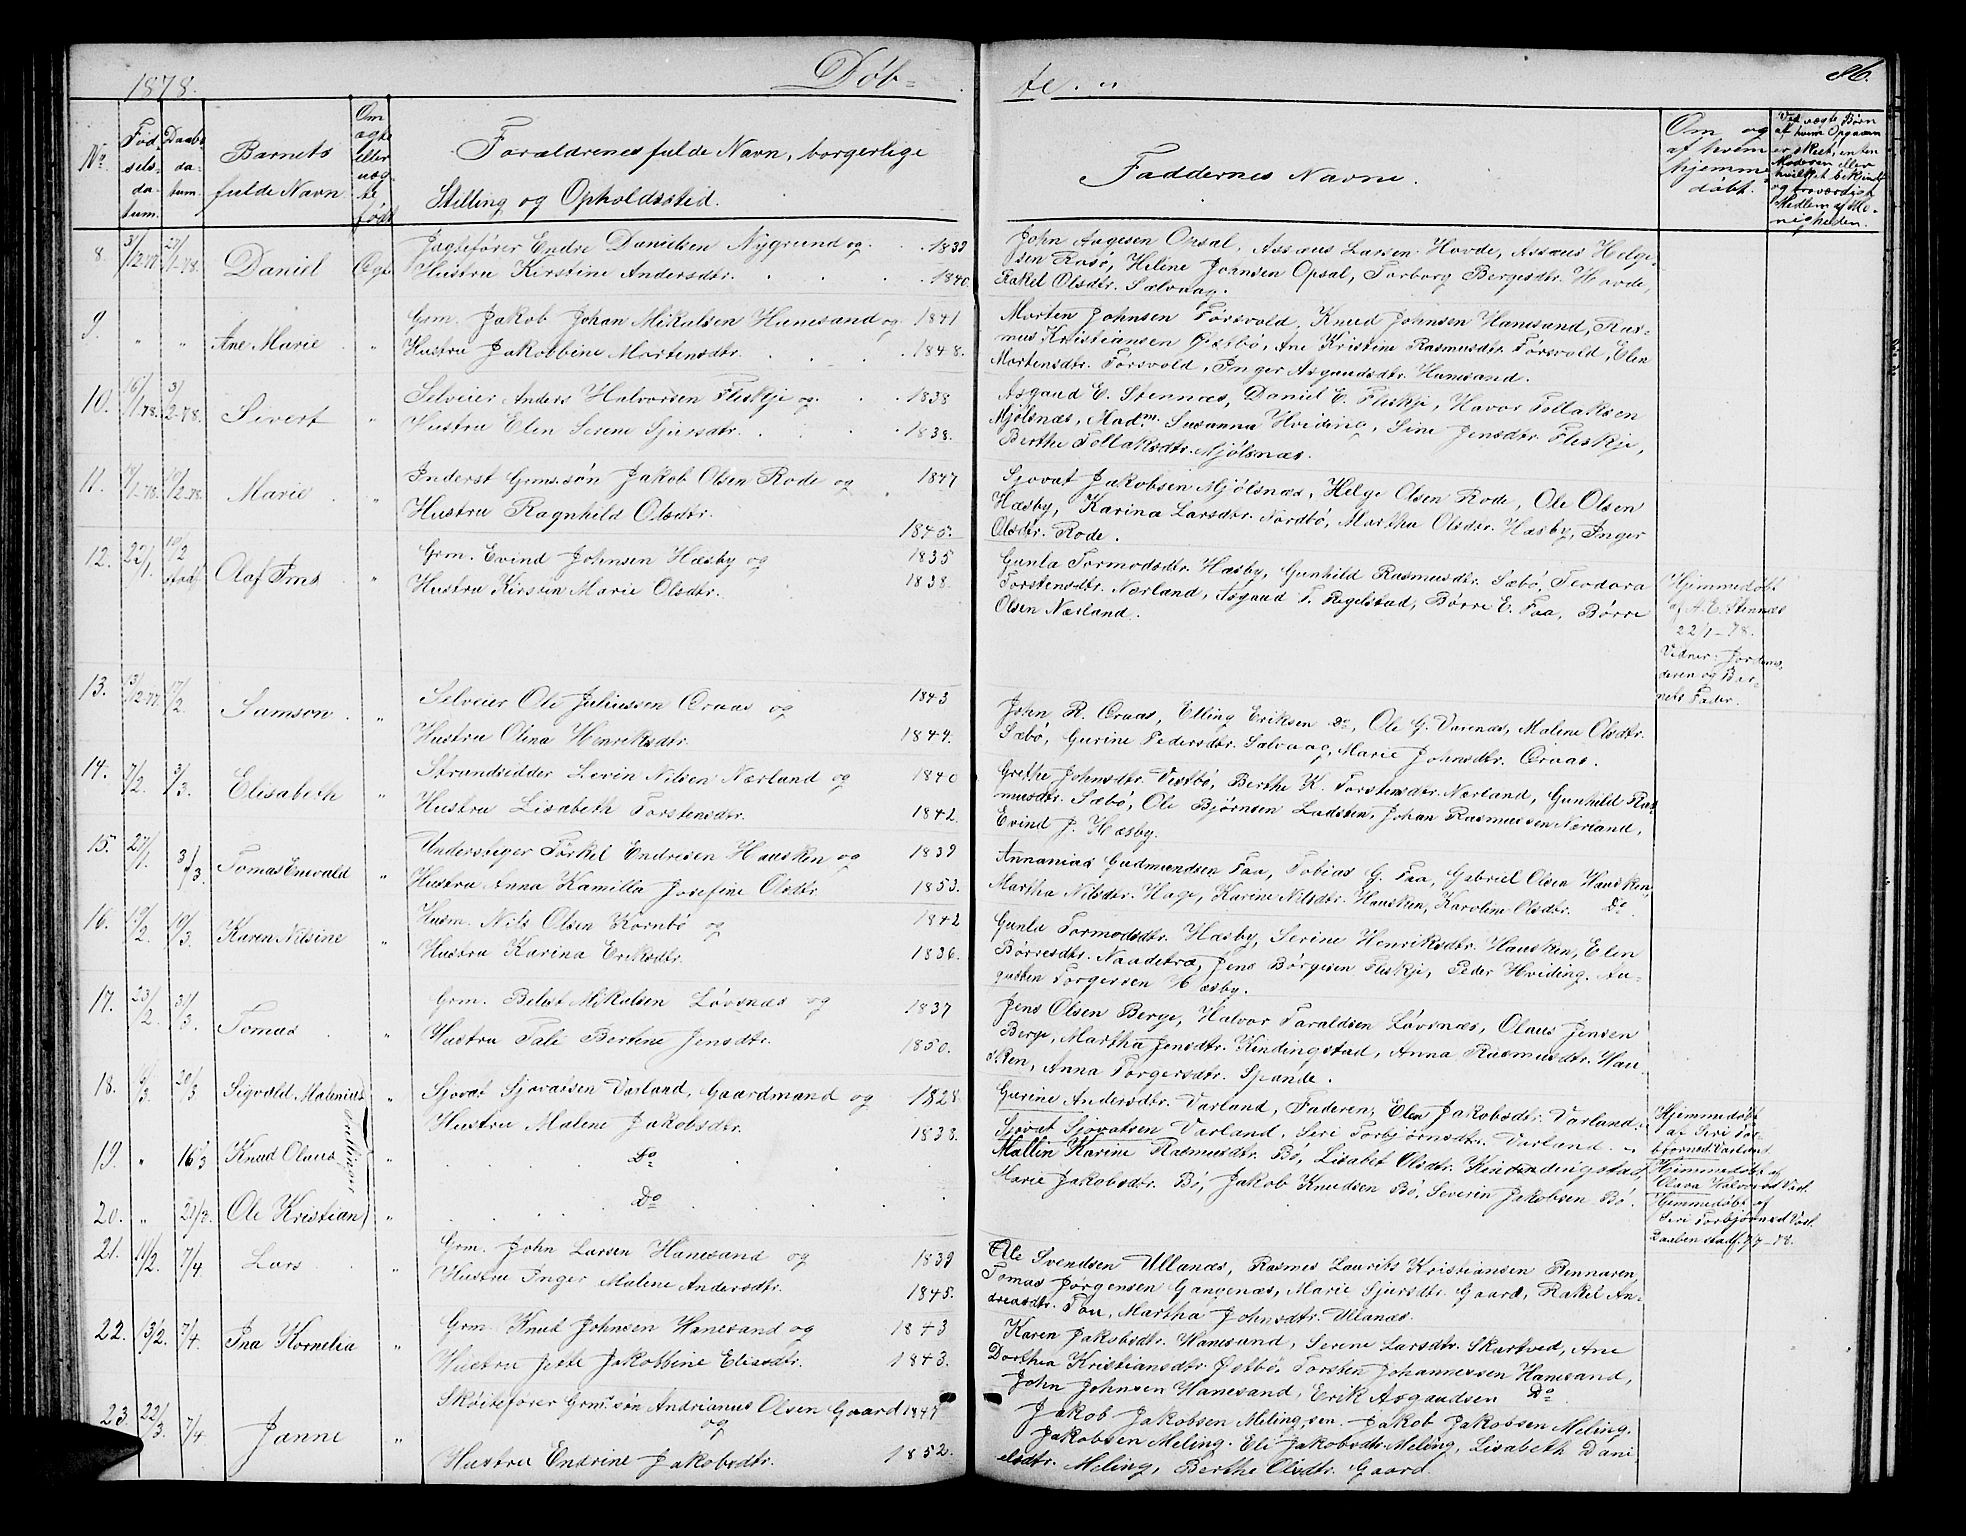 1878. Døb-
te.
86.
No.
Fød-
sels-
da-
tum.
Daabs
da-
tum.
Barnets
fulde Navn
Om
ægte
eller
uæg-
te
født
Forældrenes fulde Navn, borgerlige
Stilling og Opholdssted.
Faddernes Navne.
Om og
af hvem
hjemme
døbt.
Ved uægte Børn
af hvem Opgaven
er skeet, enten
Moderen eller
hvilket bekiendt
og troværdigt
Medlem af Me-
nigheden.
8. 3/12-77 27/1-78. Daniel Ægte
Jagtefører Endre Danielsen Nygrund og 1832
Hustru Kirstine Andersdtr. 1840.
John Aagesen Opsal, Assæus Larsen Hovde, Assæus Helge-
sen Rosø, Helene Johnsen Opsal, Torborg Bergesdtr. Hovde,
Rakel Olsdtr. Salvaag.
9. " " Ane Marie "
Grm. Jakob Johan Mikalsen Hanesand og 1841
Hustru Jakobbine Mortensdtr. 1848.
Morten Johnsen Førsvold, Knud Johnsen Hanesand, Ras-
mus Kristiansen Østbø, Ane Kristine Rasmusdtr. Førsvold, Elen
Mortensdtr. Førsvold, Inger Asgaudsdtr. Hanesand.
10. 6/1-78. 3/2-78. Sivert "
Selveier Anders Halvorsen Fliskje og 1838
Hustru Elen Serene Sjursdtr. 1838.
Asgaud E. Stennæs, Daniel E. Fliskje, Havor Tollaksen
Mjølsnæs, Madm. Susanna Hviding, Sine Jensdtr. Fliskje,
Berthe Tollaksdtr. Mjølsnæs.
11. 14/1-78. 10/2-78. Marie "
Inderst Grms.søn Jakob Olsen Rode og 1847
Hustru Ragnhild Olsdtr. 1845.
Sjovat Jakobsen Mjølsnæs, Helge Olsen Rode, Ole Olsen
Hæsby, Karina Larsdtr. Nordbø, Martha Olsdtr. Hæsby, Inger
Olsdtr. Rode.
12. 22/1. 10/2 stadf. Olaf Ims "
Grm. Evind Johnsen Hæsby og 1835
Hustru Kirsten Marie Olsdtr. 1838.
Gunla Tormodsdtr. Hæsby, Gunhild Rasmusdtr. Sæbø, Teodora
Torstensdtr. Nærland, Asgaud T. Fegelstad, Børre E. Faa, Børre
Olsen Nærland.
Hjemmedøbt
af A. E. Stennæs
22/1-78.
Vidner: Jordemo-
deren og Bar-
nets Fader.
13. 13/12-77 17/2. Samson "
Selveier Ole Juliussen Øraas og 1843
Hustru Olina Henriksdtr. 1844.
John R. Øraas, Elling Eriksen Do, Ole G. Varenæs, Malene Olsdtr.
Sæbø, Gurine Pedersdtr. Salvaag, Marie Johnsdtr. Øraas.
14. 7/2. 3/3. Elisabeth "
Strandsidder Levin Nilsen Nærland og 1840
Hustru Lisabeth Torstensdtr. 1842.
Grethe Johnsdtr. Vestbø, Berthe K. Torstensdtr. Nærland, Gunhild Ras-
musdtr. Sæbø, Ole Bjørnsen Ladsten, Johan Rasmussen Nærland,
Evind J. Hæsby.
15. 27/1. 3/3. Tomas Enevald "
Understiger Tørkel Endresen Hausken og 1839
Hustru Anna Kamilla Josefine Olsdtr 1853.
Annanias Gudmundsen Faa, Tobias G. Faa, Gabriel Olsen Hausken,
Martha Nilsdtr. Hage, Karine Nilsdtr. Hausken, Karoline Olsdtr. Do.
16. 19/2. 10/3. Karen Nilsine "
Husm. Nils Olsen Kornbø og 1842
Hustru Karina Eriksdtr. 1836.
Gunla Tormodsdtr. Hæsby, Serine Henriksdtr. Hausken, Elen
Børresdtr. Naadetræ, Jens Børgesen Fliskje, Peder Hviding, Au-
gusten Torgersen Hæsby.
17. 23/2. 31/3. Tomas "
Grm. Belest Mikalsen Løvsnæs og 1837
Hustru Tale Bertine Jensdtr. 1850.
Jens Olsen Berge, Halvor Taraldsen Løvsnæs, Olaus Jensen
Berge, Martha Jensdtr. Kindingstad, Anna Rasmusdtr. Hau-
sken, Anna Torgersdtr. Spande.
18. 6/3. 20/3 Sigvald Malenius "
Sjovat Sjovatsen Varland, Gaardmand og 1828.
Hustru Malene Jakobsdtr. 1838.
Gurine Andersdtr. Varland, Faderen, Elen Jakobsdtr. Varland,
Sjovat Sjovatsen Varland, Seri Torbjørnsdtr. Varland.
Hjemmedøbt
af Seri Tor-
bjørnsd. Varland.
19. " 16/3 Knud Olaus "
Do
Mallin Karine Rasmusdtr. Bø, Lisabet Olsdtr. Kindendingstad,
Marie Jakobsdtr. Bø, Jakob Knudsen Bø, Severin Jakobsen Bø.
Hjemmedøbt af
Olava Halvorsd Varl.
Trillinger
20. " 21/3. Ole Kristian "
Do
Hjemmedøbt af
Seri Torbjørnsd Varl.
Daaben stadf. 7/4-78.
21. 11/2. 7/4. Lars "
Grm. John Larsen Hanesand og 1839
Hustru Inger Malene Andersdtr. 1845.
Ole Svendsen Ullanæs, Rasmus Laurits Kristiansen Rennaren,
Tomas Jørgensen Gangenæs, Marie Sjursdtr. Gaard, Rakel An-
dreasdtr. Fau, Martha Johnsdtr. Ullanæs.
22. 13/2. 7/4. Ina Kornelia "
Grm. Knut Johnsen Hanesand og 1843
Hustru Jette Jakobine Eliasdtr. 1843.
Karen Jakobsdtr. Hanesand, Serene Larsdtr. Skartved, Ane
Dorthea Kristiansdtr. Østbø, Torsten Johannessen Hanesand,
John Johnsen Hanesand, Erik Asgaudsen Do.
23. 22/3. 7/4. Janne "
Skøitefører Grms.søn Andrianus Olsen Gaard 1847
og
Hustru Endrine Jakobsdtr. 1852.
Jakob Jakobsen Melingsen. Jakob Jakobsen Meling.
Jakobsen Meling. Eli Jakobsdtr. Meling, Lisabeth Dani-
elsdtr. Meling, Berthe Olsdtr. Gaard.